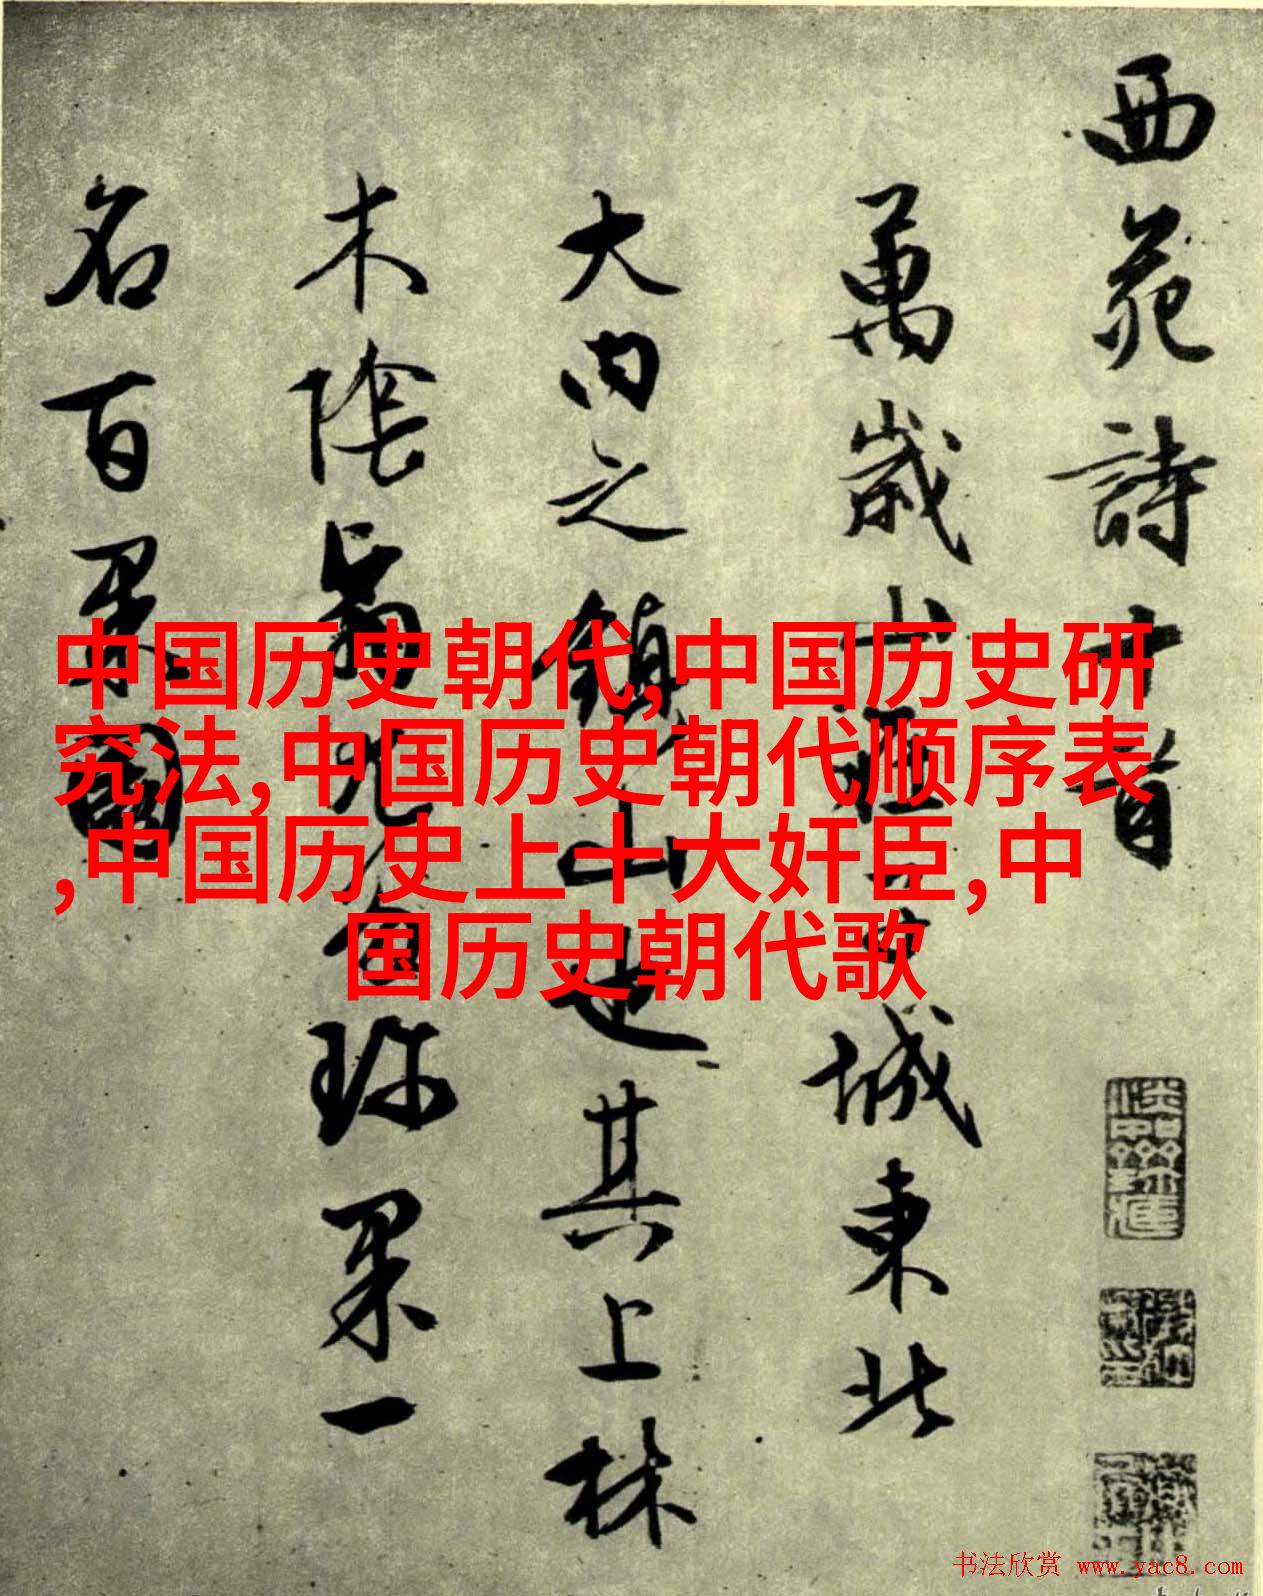 中国历史朝代,中国历史研
究法,中国历史朝代顺序表
,中国历史上十大奸臣,中
国历史朝代歌
西苑詩十首
萬歲山在子城東北
大内之鎮山也其上林
木陰翳尤多珎果一
名百果園
书法欣赏 www.yac8.com